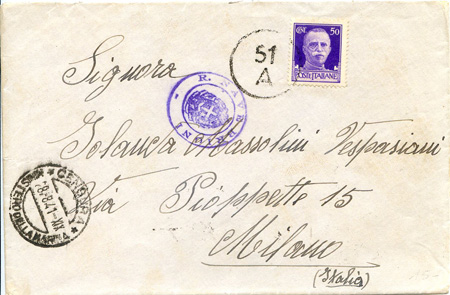 CENT. 50
POSTE ITALIANE
51
A
R. NAVE
Signora
Iolanda Massolini Vespasiani
Via Pioppette 15
Milano
(Italia)
CENSURA
MINISTERO DELLA MARINA
8.8.41.XIX